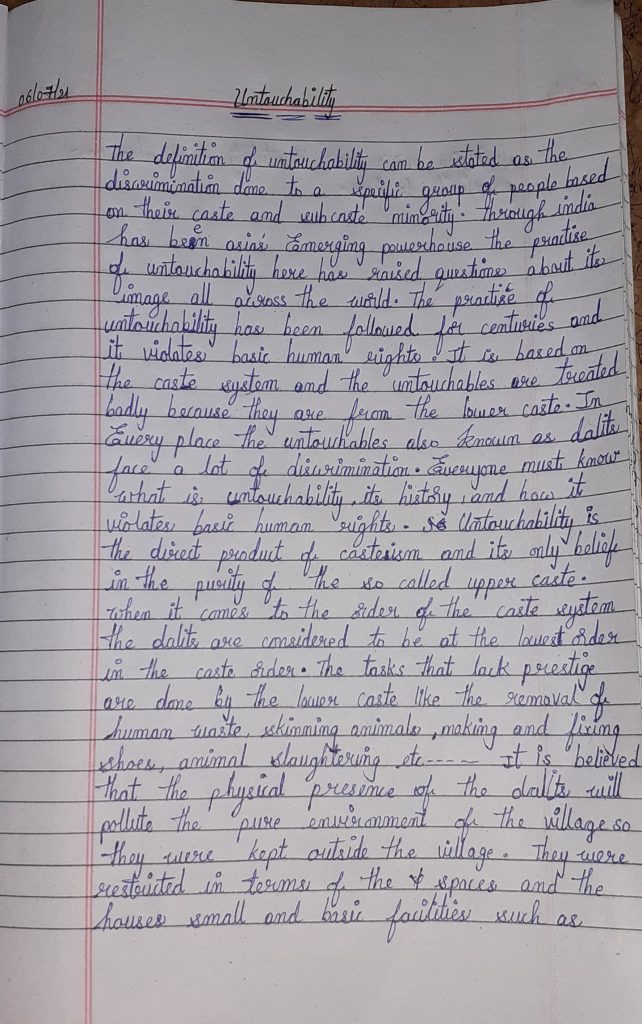 06/07/21
Untouchability
The definition of untouchability can be stated as the
discrimination done to a specific group of people based
on their caste and subcaste minority. Through india
has been asias Emerging powerhouse the practise
of untouchability here has raised questions about its
image all across the world. The practise of
untouchability has been followed for centuries and
it violates basic human rights. It is based on
the caste system and the untouchables are treated
badly because they are from the lower caste. In
Every place the untouchables also known as dalits
face a lot of discrimination. Everyone must know
what is untouchability, its history, and how it
violates basic human rights. Untouchability is
the direct product of casteism and its only belief
in the purity of the so called upper caste.
when it comes to the order of the caste system
the dalits are considered to be at the lowest order
in the caste order. The tasks that lack prestige
are done by the lower caste like the removal of
human waste, skinning animals, making and fixing
shoes, animal slaughtering etc----- It is believed
that the physical presence of the dalits will
pollute the pure environment of the village so
they were kept outside the village. They were
restricted in terms of the spaces and the
houses small and basic facilities such as